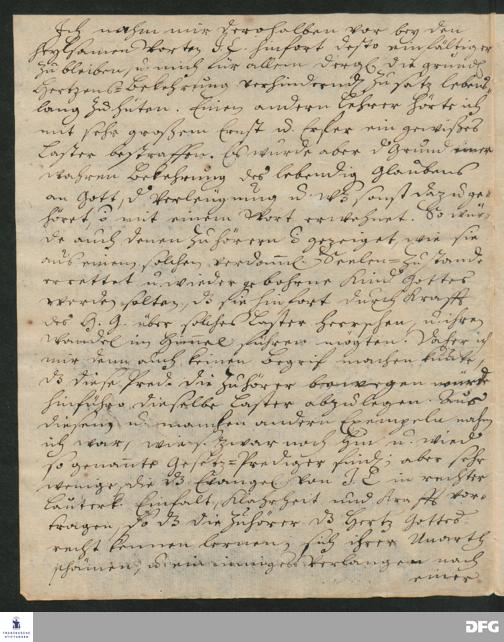 Ich nahm mir derohalben vor bey den
heylsamen Worten J. C. hinfort desto einfältiger
zu bleiben, u. mich für allem dergl. die gründl.
Hertzens=Bekehrung verhindernde Zusätze lebens
lang zu hüten. Einen andern Lehrer hörte ich
mit sehr großem Ernst u. Eyfer ein gewißes
Laster bestraffen. Es wurde aber d. Grund einer
wahren Bekehrung des lebendig Glaubens
an Gott, d. Verleugnung u. was sonst dazu ge-
höret, mit einem Wort erwehnet. So wur-
de auch denen Zuhörern gezeiget, wie sie
aus einem solchen verdammL. Seelen=Zustande
errettet u. wiedergebohrne Kind. Gottes
werden solten, die sie hinfort durch Krafft
des H. G. über solches Laster herrschen, u. ihren
Wandel im Himmel führen mögten. Daher ich
mir denn auch keinen begrif machen kunte,
daß diese Pred. die Zuhörer bewegen würde
hinführo dieselbe Laster abzulegen. Aus
diesem u. manchen andern Exempeln nahm
ich war, wie zwar noch hin u. wied.
so genannte Gesetz=Prediger sind, aber sehr
wenige, die das Evangel. von J. C. in rechter
lauterk. Einfalt, Klahrheit und Krafft vor-
tragen, so daß die Zuhörer das Hertz Gottes
recht kennen lernen, sich ihrer Unarth
schämen, u. ein inniges Verlangen nach
einer
FRANCKESCHE STIFTUNGEN
DFG